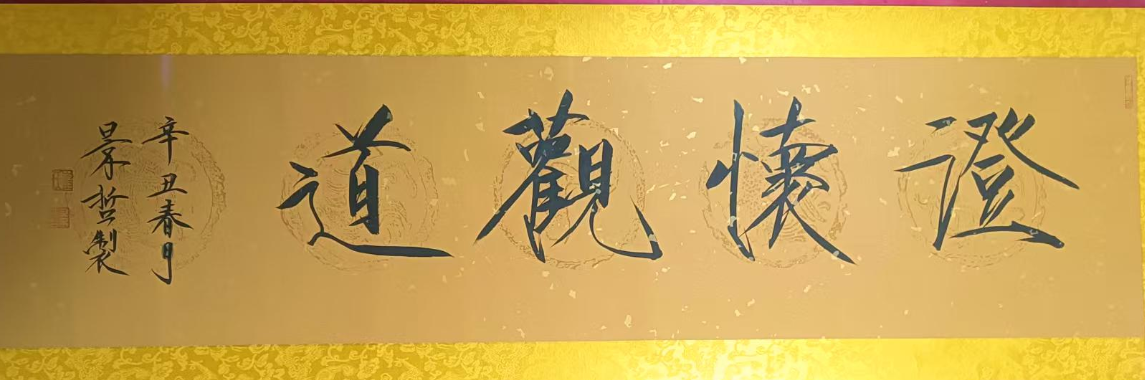 澄懷觀道
辛丑春月
景哲製